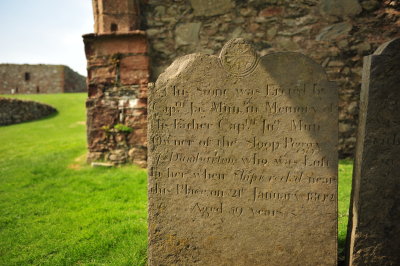 This Stone was Erected by
Capt. Js. Min. in Memory of
his Father Capt. Js. Min.
Owner of the Sloop Peggy
who was Lost
in her when Shipwreck'd near
this Place on 21st January 1802
Aged 59 years